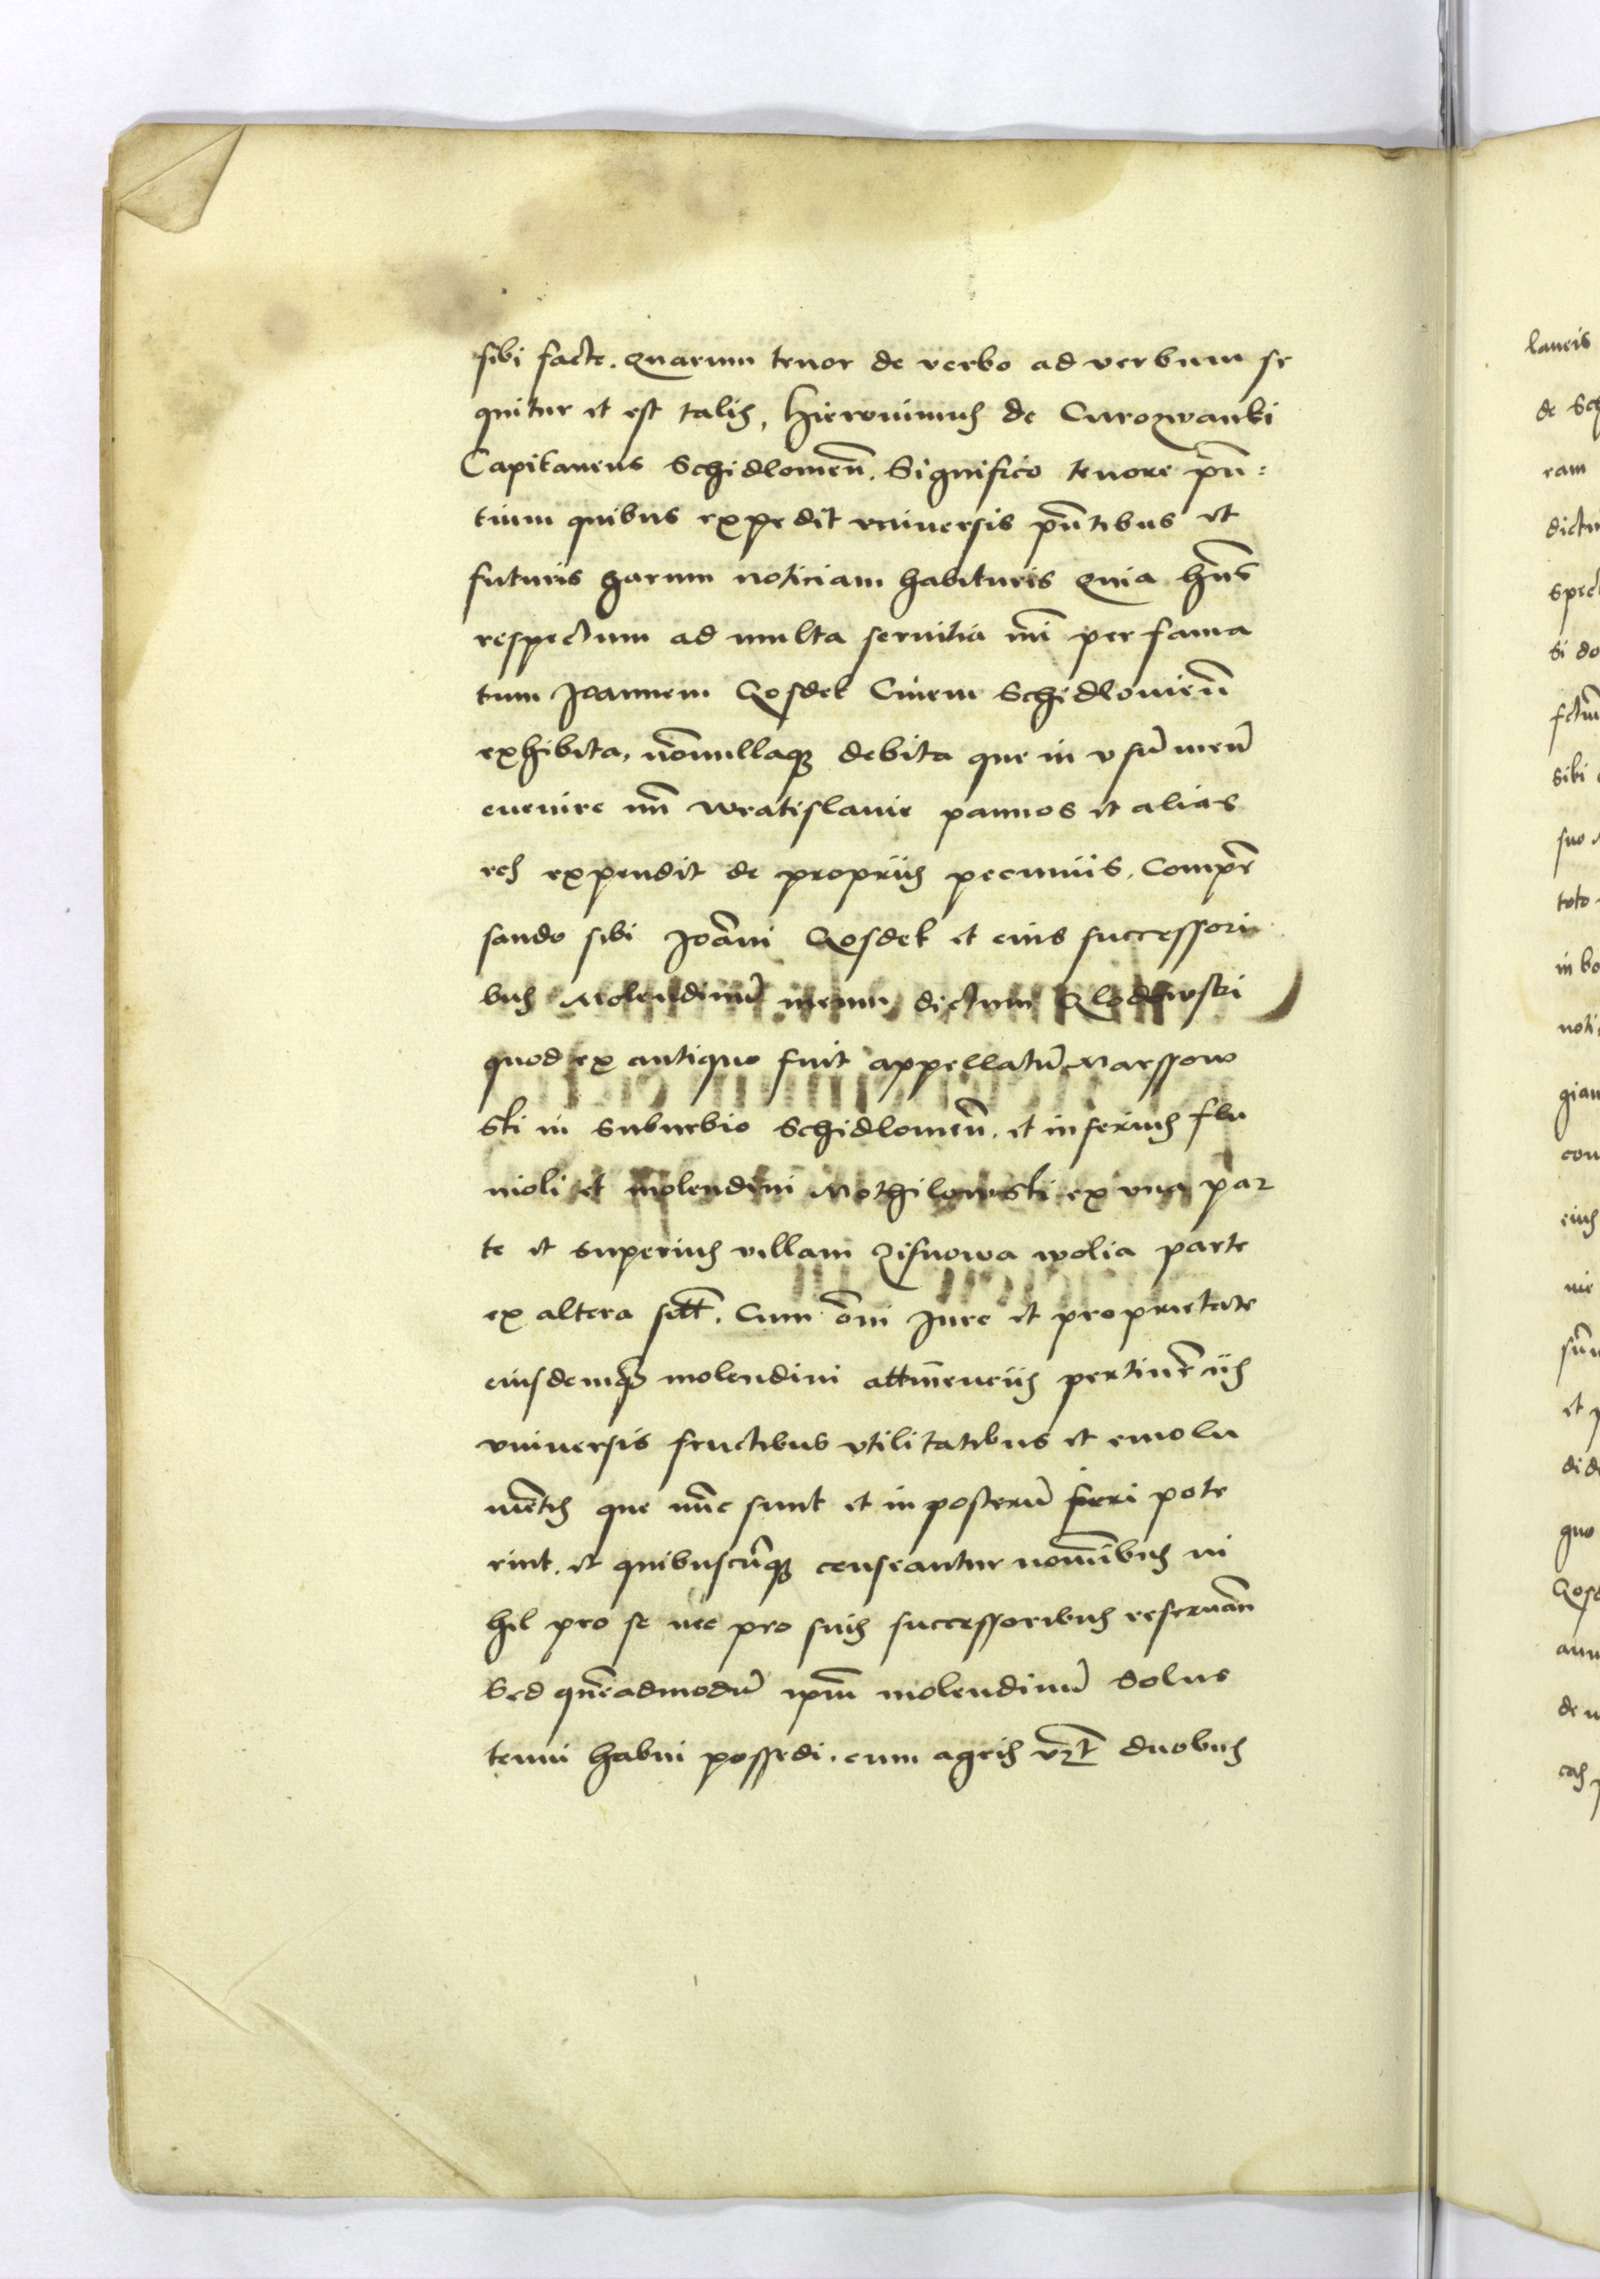 sibi facte. Quarum tenor de verbo ad verbum se
quitur et est talis, Hieronimus de Curozwanki
Capitaneus Schidlowień. Significo tenore pn̄:
tium quibus expedit vniuersis pn̄tibus et
futuris harum noticiam habituris Quia hn̄s
respectum ad multa seruitia mi per fama
tum Joannem Qosdek Ciuem Schidlouień
exhibita, nōnullaq debita que in vsū meū
euenire Wratislauie pannos et alias
res expendit de propriis pecuniis. Compē
sando sibi Joāni Qosdek et eius successori
bus Molendinū meum dictum Qlodowski
quod ex antiquo fuit appellatū Marssow
ski in suburbio Schidlowień. et inferius flu
uioli et molendini Mothilowski ex vna par
te et superius villam Zisnowa wolia parte
ex altera Cum ōni Jure et proprietate
eiusdemq molendini attinēciis pertinēciis
vniuersis fructibus vtilitatibus et emolu
mētis que nūc sunt et in posterū fieri pote
rint. et quibuscūq censeantur nomībus ni
hil pro se nec pro suis successoribus reseruān
Sed quēadmodū ipm̄ molendinū solus
tenui habui possedi. cum agris duobus
laneis
de Sch
ram
si do
sibi
suo
toto
in bo
noti
eius
et
de